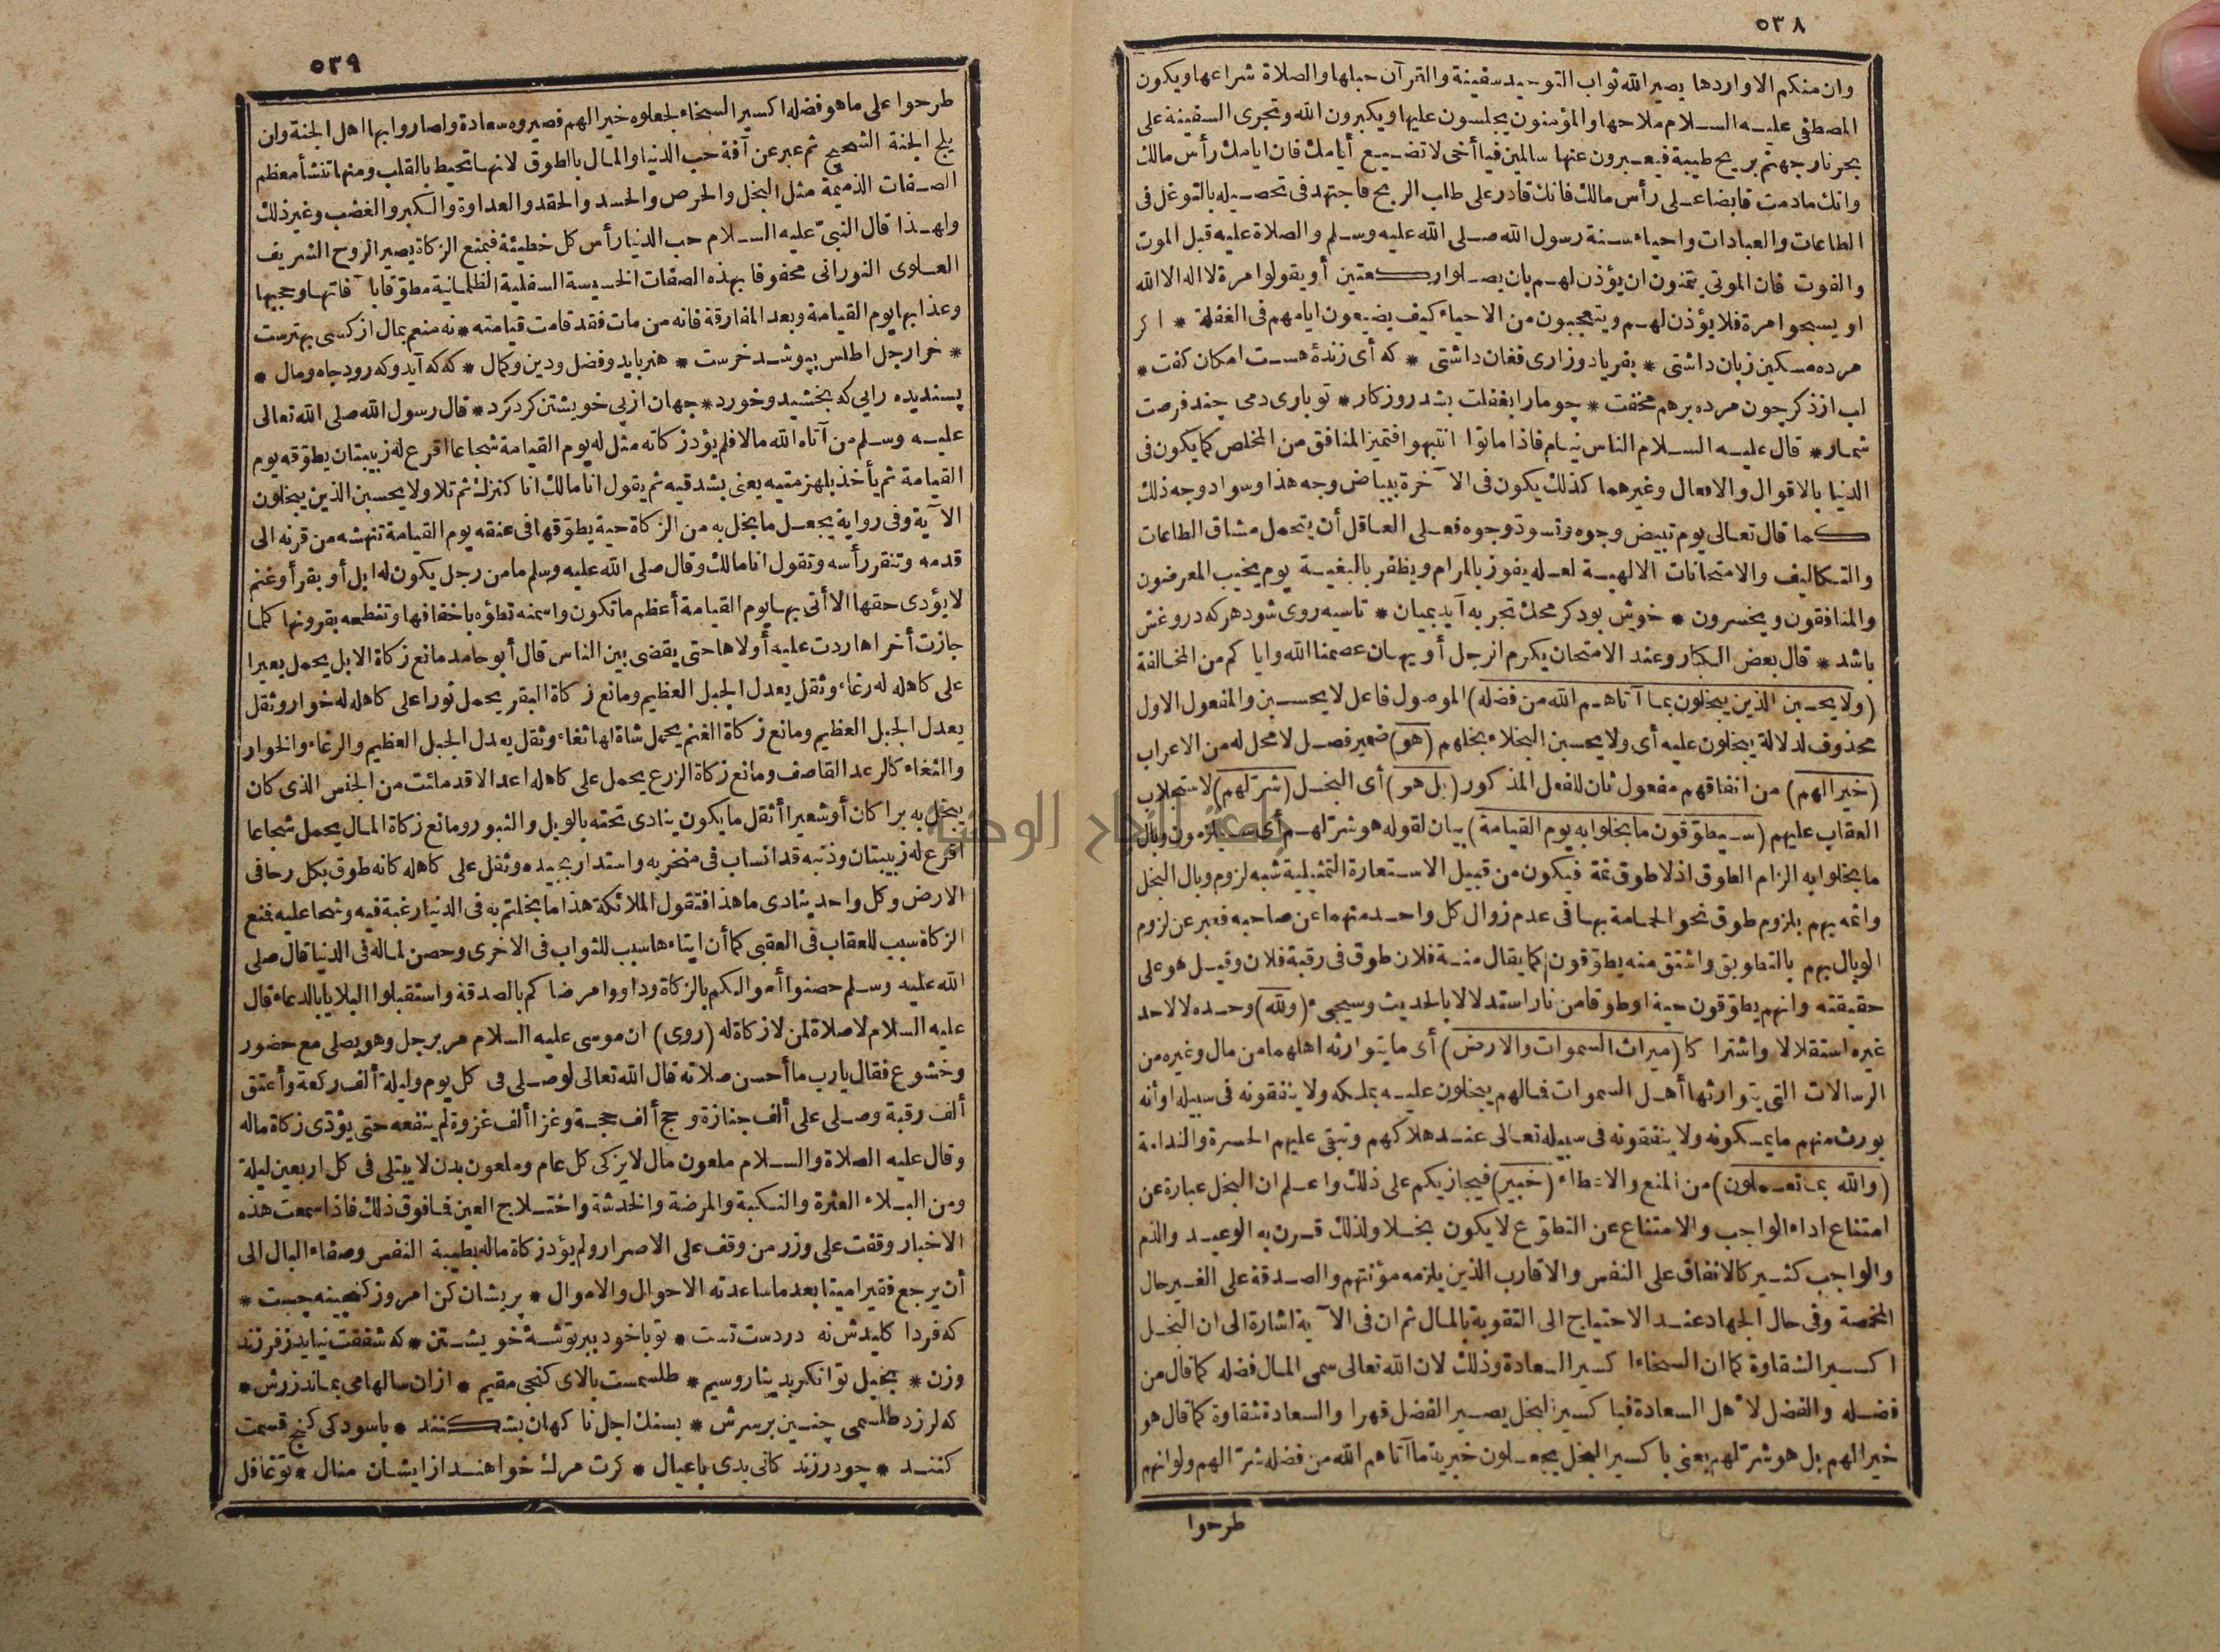 ٥٣٨
وان منكم الا واردها يصير الله ثواب التوحيد سفينة والقرآن حبلها والصلاة شراعها ويكون
المصطفى عليه السلام ملاحها والمؤمنون يجلسون عليها ويكبرون الله وتجرى السفينة على
بحر نار جهنم بريح طيبة فيعبرون عنها سالمين فيا أخى لا تضيع أيامك فان ايامك رأس مالك
وانك مادمت قابضا على رأس مالك فانك قادر على طلب الربح فاجتهد فى تحصيله بالتوغل فى
الطاعات والعبادات واحياء سنة رسول الله صلى الله عليه وسلم والصلاة عليه قبل الموت
والفوت فان الموتى يتمنون ان يؤذن لهم بان يصلوا ركعتين أو يقولوا مرة لا اله الا الله
او يسبحوا مرة فلا يؤذن لهم ويتعجبون من الاحياء كيف يضيعون ايامهم فى الغفلة * اكر
مرده مسكين زبان داشتى * بفرياد وزارى فغان داشتى * كه أى زنده هست امكان كفت *
لب از ذكر چون مرده برهم مخفت * چو مارا بغفلت بشد روزكار * تو بارى دمى چند فرصت
شمار * قال عليه السلام الناس نيام فاذا ماتوا انتبهوا فتميز المنافق من المخلص كما يكون فى
الدنيا بالاقوال والافعال وغيرهما كذلك يكون فى الآخرة ببياض وجه هذا وسواد وجه ذلك
كما قال تعالى يوم تبيض وجوه وتسود وجوه فعلى العاقل أن يتحمل مشاق الطاعات
والتكاليف والامتحانات الالهية لعله يفوز بالمرام ويظفر بالبغية يوم يخيب المعرضون
والمنافقون ويخسرون * خوش بود كر محك تجربه آيد بميان * تاسيه روى شود هركه دروغش
باشد * قال بعض الكبار وعند الامتحان يكرم الرجل أو يهان عصمنا الله واياكم من المخالفة
(ولا يحسبن الذين يبخلون بما آتاهم الله من فضله) الموصول فاعل لا يحسبن والمفعول الاول
محذوف لدلالة يبخلون عليه أى ولا يحسبن البخلاء بخلهم (هو) ضمير فصل لا محل له من الاعراب
(خيرا لهم) من انفاقهم مفعول ثان للفعل المذكور (بل هو) أى البخل (شر لهم) لاستجلاب
العقاب عليهم (سيطوقون ما بخلوا به يوم القيامة) بيان لقوله هو شر لهم أى سيلزمون وبال
ما بخلوا به الزام الطوق اذ لا طوق ثمة فيكون من قبيل الاستعارة التمثيلية شبه لزوم وبال البخل
واثمه بهم بلزوم طوق نحو الحمامة بها فى عدم زوال كل واحد منهما عن صاحبه فعبر عن لزوم
الوبال بهم بالتطويق واشتق منه يطوقون كما يقال منة فلان طوق فى رقبة فلان وقيل هو على
حقيقته وانهم يطوقون حية او طوقا من نار استدلالا بالحديث وسيجىء (ولله) وحده لا لاحد
غيره استقلالا واشتراكا (ميراث السموات والارض) أى ما يتوارثه اهلهما من مال وغيره من
الرسالات التى يتوارثها أهل السموات فما لهم يبخلون عليه بملكه ولا ينفقونه فى سبيله او أنه
يورث منهم ما يمسكونه ولا ينفقونه فى سبيله تعالى عند هلاكهم وتبقى عليهم الحسرة والندامة
(والله بما تعملون) من المنع والاعطاء (خبير) فيجازيكم على ذلك واعلم ان البخل عبارة عن
امتناع اداء الواجب والامتناع عن التطوع لا يكون بخلا ولذلك قرن به الوعيد والذم
والواجب كثير كالانفاق على النفس والاقارب الذين يلزمه مؤنتهم والصدقة على الغير حال
المخمصة وفى حال الجهاد عند الاحتياج الى التقوية بالمال ثم ان فى الآية اشارة الى ان البخل
اكسير الشقاوة كما ان السخاء اكسير السعادة وذلك لان الله تعالى سمى المال فضله كما قال من
فضله والفضل لاهل السعادة فبا كسير البخل يصير الفضل قهرا والسعادة شقاوة كما قال هو
خيرا لهم بل هو شر لهم يعنى با كسير البخل يجعلون خيرية ما آتاهم الله من فضله شرا لهم ولو انهم
طرحوا
٥٣٩
طرحوا على ما هو فضله اكسير السخاء لجعلوه خيرا لهم فصيروه سعادة ولصاروا بها اهل الجنة ولن
يلج الجنة الشحيح ثم عبر عن آفة حب الدنيا والمال بالطوق لانها تحيط بالقلب ومنها تنشأ معظم
الصفات الذميمة مثل البخل والحرص والحسد والحقد والعداوة والكبر والغضب وغير ذلك
ولهذا قال النبى عليه السلام حب الدنيا رأس كل خطيئة فبمنع الزكاة يصير الروح الشريف
العلوى النورانى محفوفا بهذه الصفات الخسيسة السفلية الظلمانية مطوقا با فاتها وحجبها
وعذابها يوم القيامة وبعد المفارقة فانه من مات فقد قامت قيامته * نه منعم بمال از كسى بهترست
* خر ارجل اطلس بپوشد خرست * هنر بايد وفضل ودين وكمال * كه كه آيد وكه رود جاه ومال *
پسنديده رايى كه بخشيد وخورد * جهان از پى خويشتن كرد كرد * قال رسول الله صلى الله تعالى
عليه وسلم من آتاه الله مالا فلم يؤد زكاته مثل له يوم القيامة شجاعا اقرع له زبيبتان يطوقه يوم
القيامة ثم يأخذ بلهزمتيه يعنى بشدقيه ثم يقول انا مالك انا كنزك ثم تلا ولا يحسبن الذين يبخلون
الآية وفى رواية يجعل ما بخل به من الزكاة حية يطوقها فى عنقه يوم القيامة تنهشه من قرنه الى
قدمه وتنقر رأسه وتقول انا مالك وقال صلى الله عليه وسلم ما من رجل يكون له ابل أو بقر أو غنم
لا يؤدى حقها الا أتى بها يوم القيامة أعظم ما تكون واسمنه تطؤه باخفافها وتنطحه بقرونها كلما
جازت أخراها ردت عليه أولاها حتى يقضى بين الناس قال أبو حامد مانع زكاة الابل يحمل بعيرا
على كاهله له رغاء وثقل يعدل الجبل العظيم ومانع زكاة البقر يحمل ثورا على كاهله له خوار وثقل
يعدل الجبل العظيم ومانع زكاة الغنم يحمل شاة لها ثغاء وثقل يعدل الجبل العظيم والرغاء والخوار
والثغاء كالرعد القاصف ومانع زكاة الزرع يحمل على كاهله اعدالا قد ملئت من الجنس الذى كان
يبخل به برا كان أو شعيرا أثقل ما يكون ينادى تحته بالويل والثبور ومانع زكاة المال يحمل شجاعا
اقرع له زبيبتان وذنبه قد انساب فى منخريه واستدار بجيده وثقل على كاهله كانه طوق بكل رحا فى
الارض وكل واحد ينادى ما هذا فتقول الملائكة هذا ما بخلتم به فى الدنيا رغبة فيه وشحا عليه فمنع
الزكاة سبب للعقاب فى العقبى كما أن ايتاءها سبب للثواب فى الاخرى وحصن لماله فى الدنيا قال صلى
الله عليه وسلم حصنوا أموالكم بالزكاة وداووا مرضاكم بالصدقة واستقبلوا البلايا بالدعاء قال
عليه السلام لا صلاة لمن لا زكاة له (روى) ان موسى عليه السلام مر برجل وهو يصلى مع حضور
وخشوع فقال يا رب ما أحسن صلاته قال الله تعالى لو صلى فى كل يوم وليلة ألف ركعة وأعتق
ألف رقبة وصلى على ألف جنازة وحج ألف حجة وغزا ألف غزوة لم ينفعه حتى يؤدى زكاة ماله
وقال عليه الصلاة والسلام ملعون مال لا يزكى كل عام وملعون بدن لا يبتلى فى كل اربعين ليلة
ومن البلاء العثرة والنكبة والمرضة والخدشة واختلاج العين فما فوق ذلك فاذا سمعت هذه
الاخبار وقفت على وزر من وقف على الاصرار ولم يؤد زكاة ماله بطيبة النفس وصفاء البال الى
أن يرجع فقيرا ميتا بعد ما ساعدته الاحوال والاموال * پريشان كن امروز كنجينه چست *
كه فردا كليدش نه دردست تست * تو با خود ببر توشه خويشتن * كه شفقت نيايد ز فرزند
وزن * بخيل توانكر بدينار وسيم * طلسمست بالاى كنجى مقيم * ازان سالها مى بماند زرش *
كه لرزد طلسمى چنين بر سرش * بسنك اجل ناكهان بشكنند * باسودكى كنج قسمت
كنند * چو در زندكانى بدى با عيال * كرت مرك خواهند از ايشان منال * تو غافل